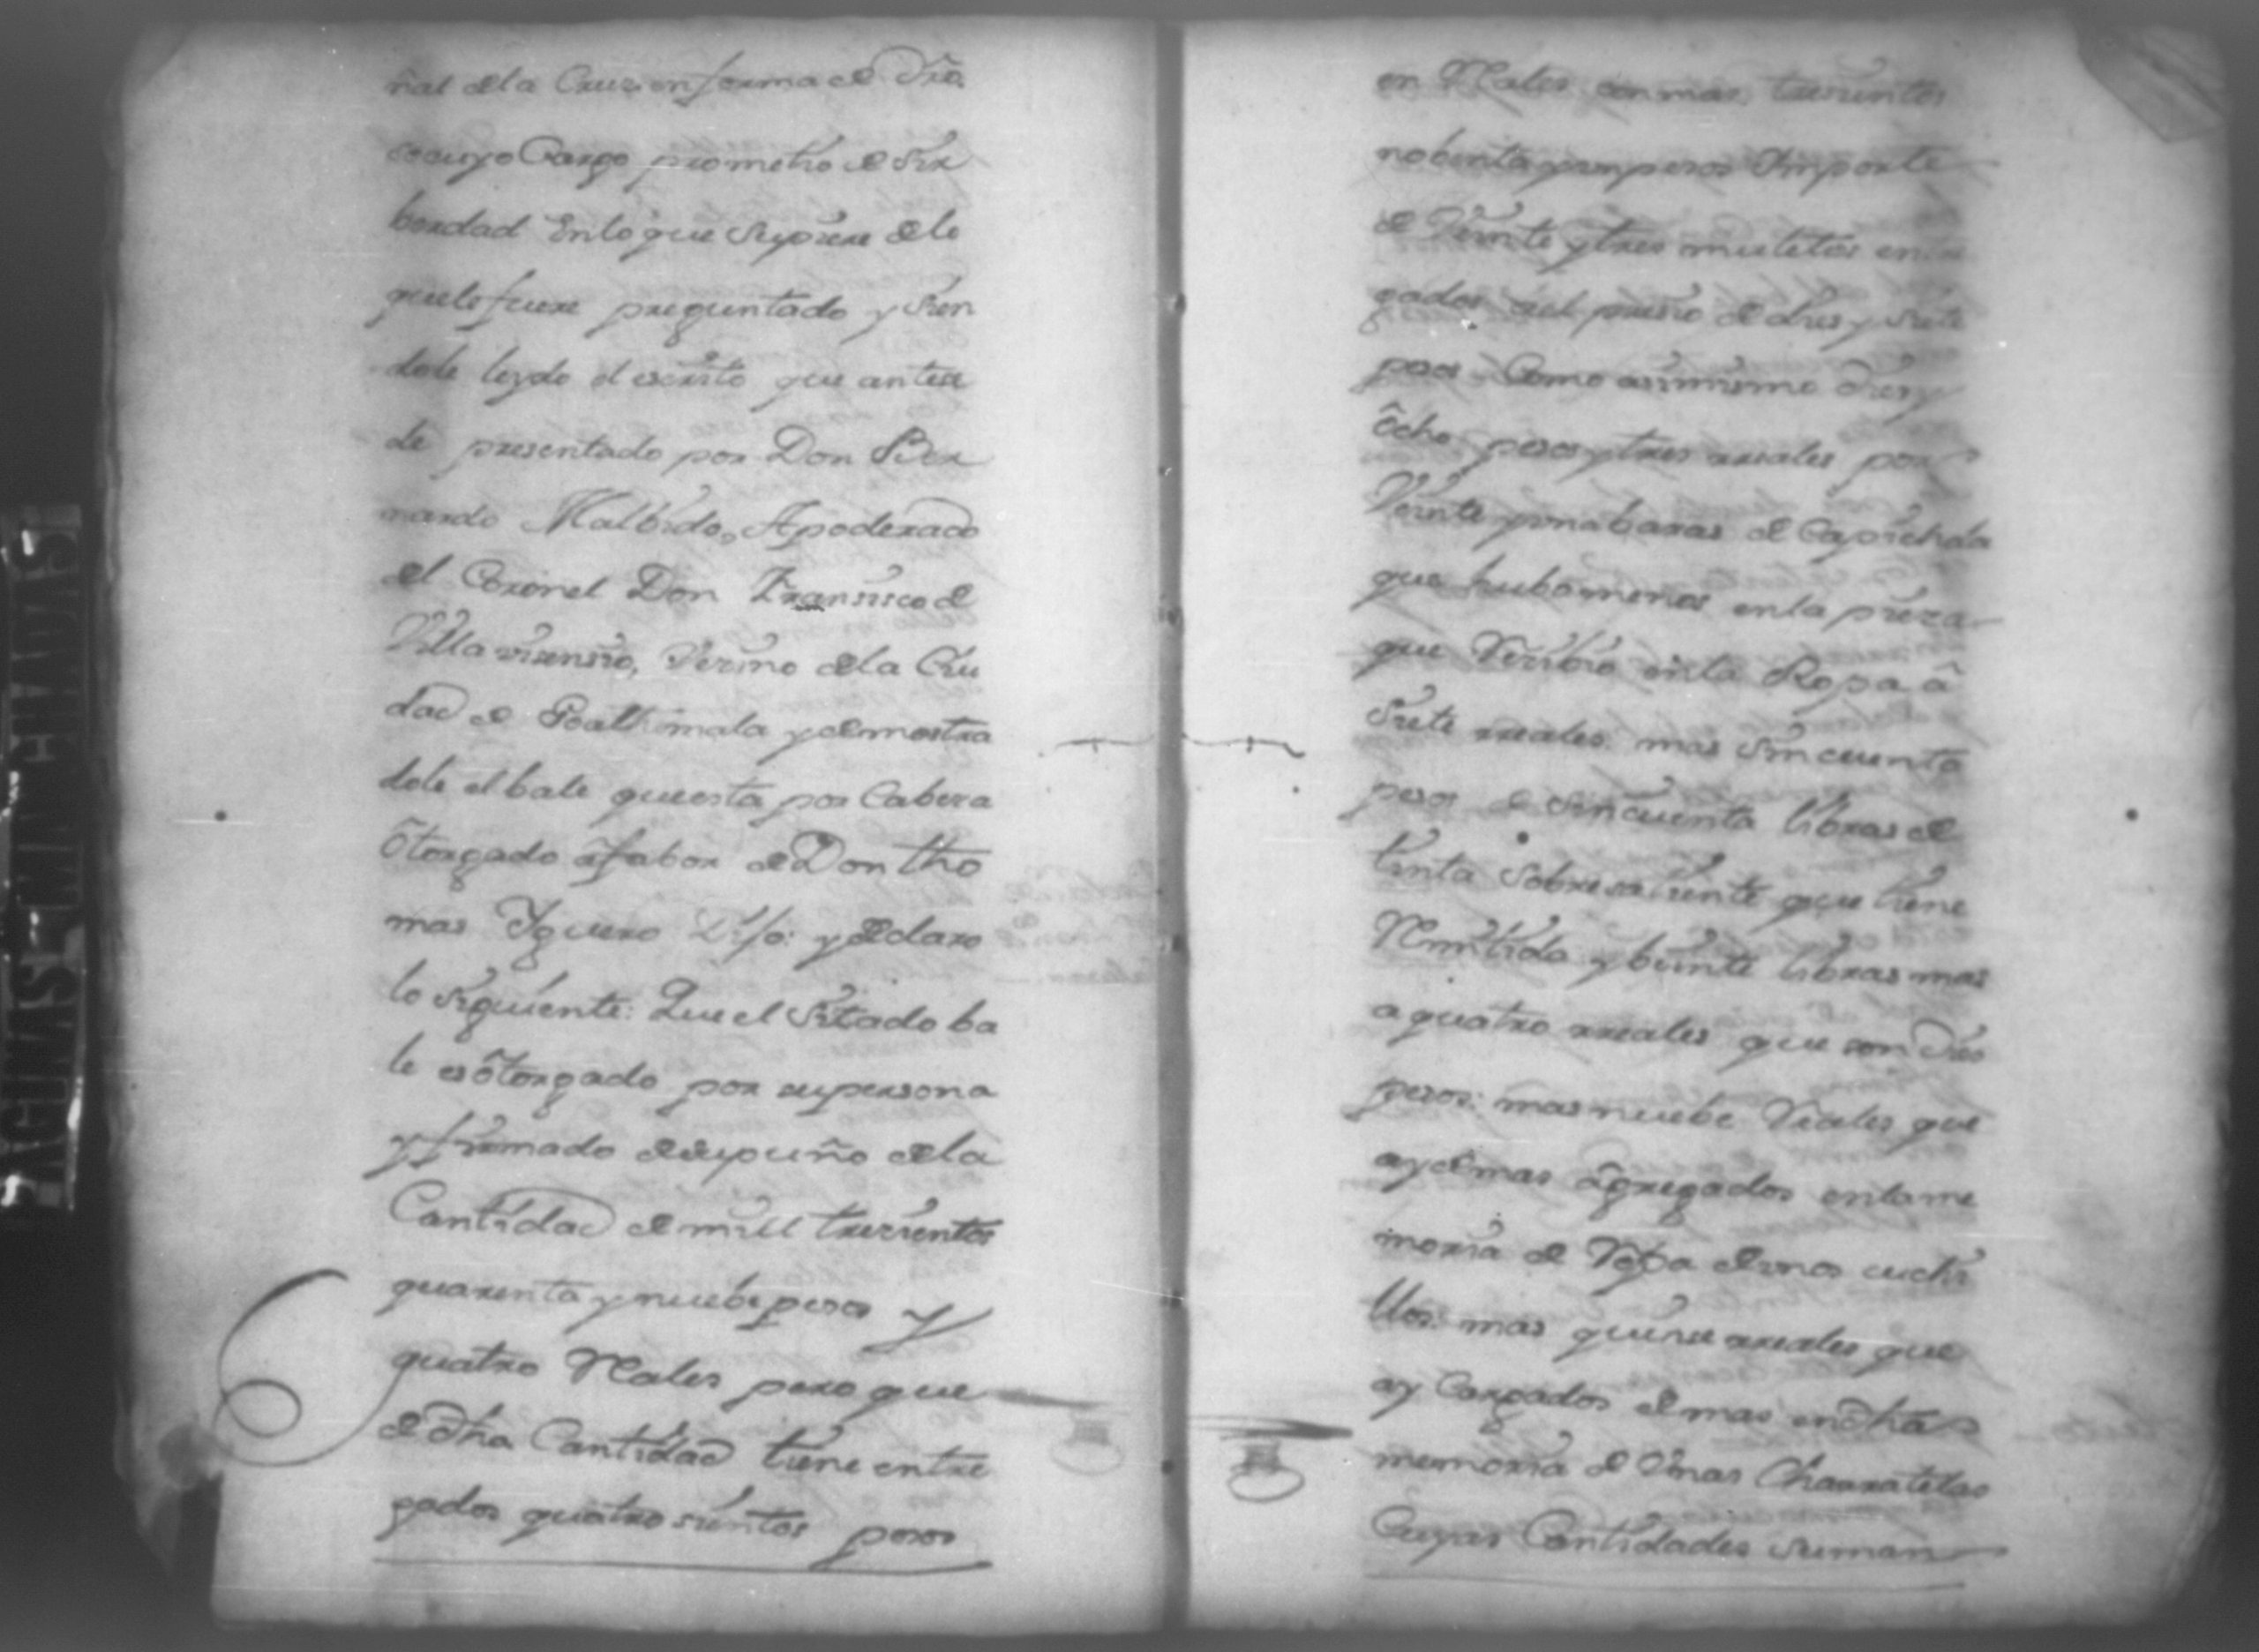 ñal de la Cruz en forma de Dro.
so cuyo Cargo prometio de Sir
berdad En lo que Supiere de lo
que le fuere preguntado y Sien
dole leydo el escrito que antese
de presentado por Don Ber
nardo Malbido, Apoderado
del Coronel Don Fransisco de
Villavisensio, Vesino de la Ciu
dad de Goathemala y demostra
dole el bale que esta por Cabesa
ôtorgado â fabor de Don tho
mas Yquero y declaro
lo Siguiente: Que el Sitado ba
le es ôtorgado por su persona
y firmado de su puño de la
Cantidad de mill tresientos
quarenta y nuebe pesos y
quatro Reales pero que
de dha Cantidad tiene entre
gados quatrosientos pesos
en Reales con mas tresientos
nobenta y un pesos Importe
de Veinte y tres muletos entre
gados al presio de dies y Siete
pesos. Como asimismo dies y
ôcho pesos y tres rreales por
Veinte y una baras de Capichola
que hubo menos en la piesa
que Resibio en la Ropa â
Siete rreales. mas Sincuenta
pesos de Sincuenta libras de
tinta Sobresaliente que tiene
Remitida y beinte libras mas
a quatro rreales que son dies
pesos: mas nuebe Reales que
ay demas âgregados en la me
moria de Ropa de unos cuchi
llos: mas quinse rreales que
ay Cargados de mas en dha
memoria de Unas Charrateles
Cuyas Cantidades Suman